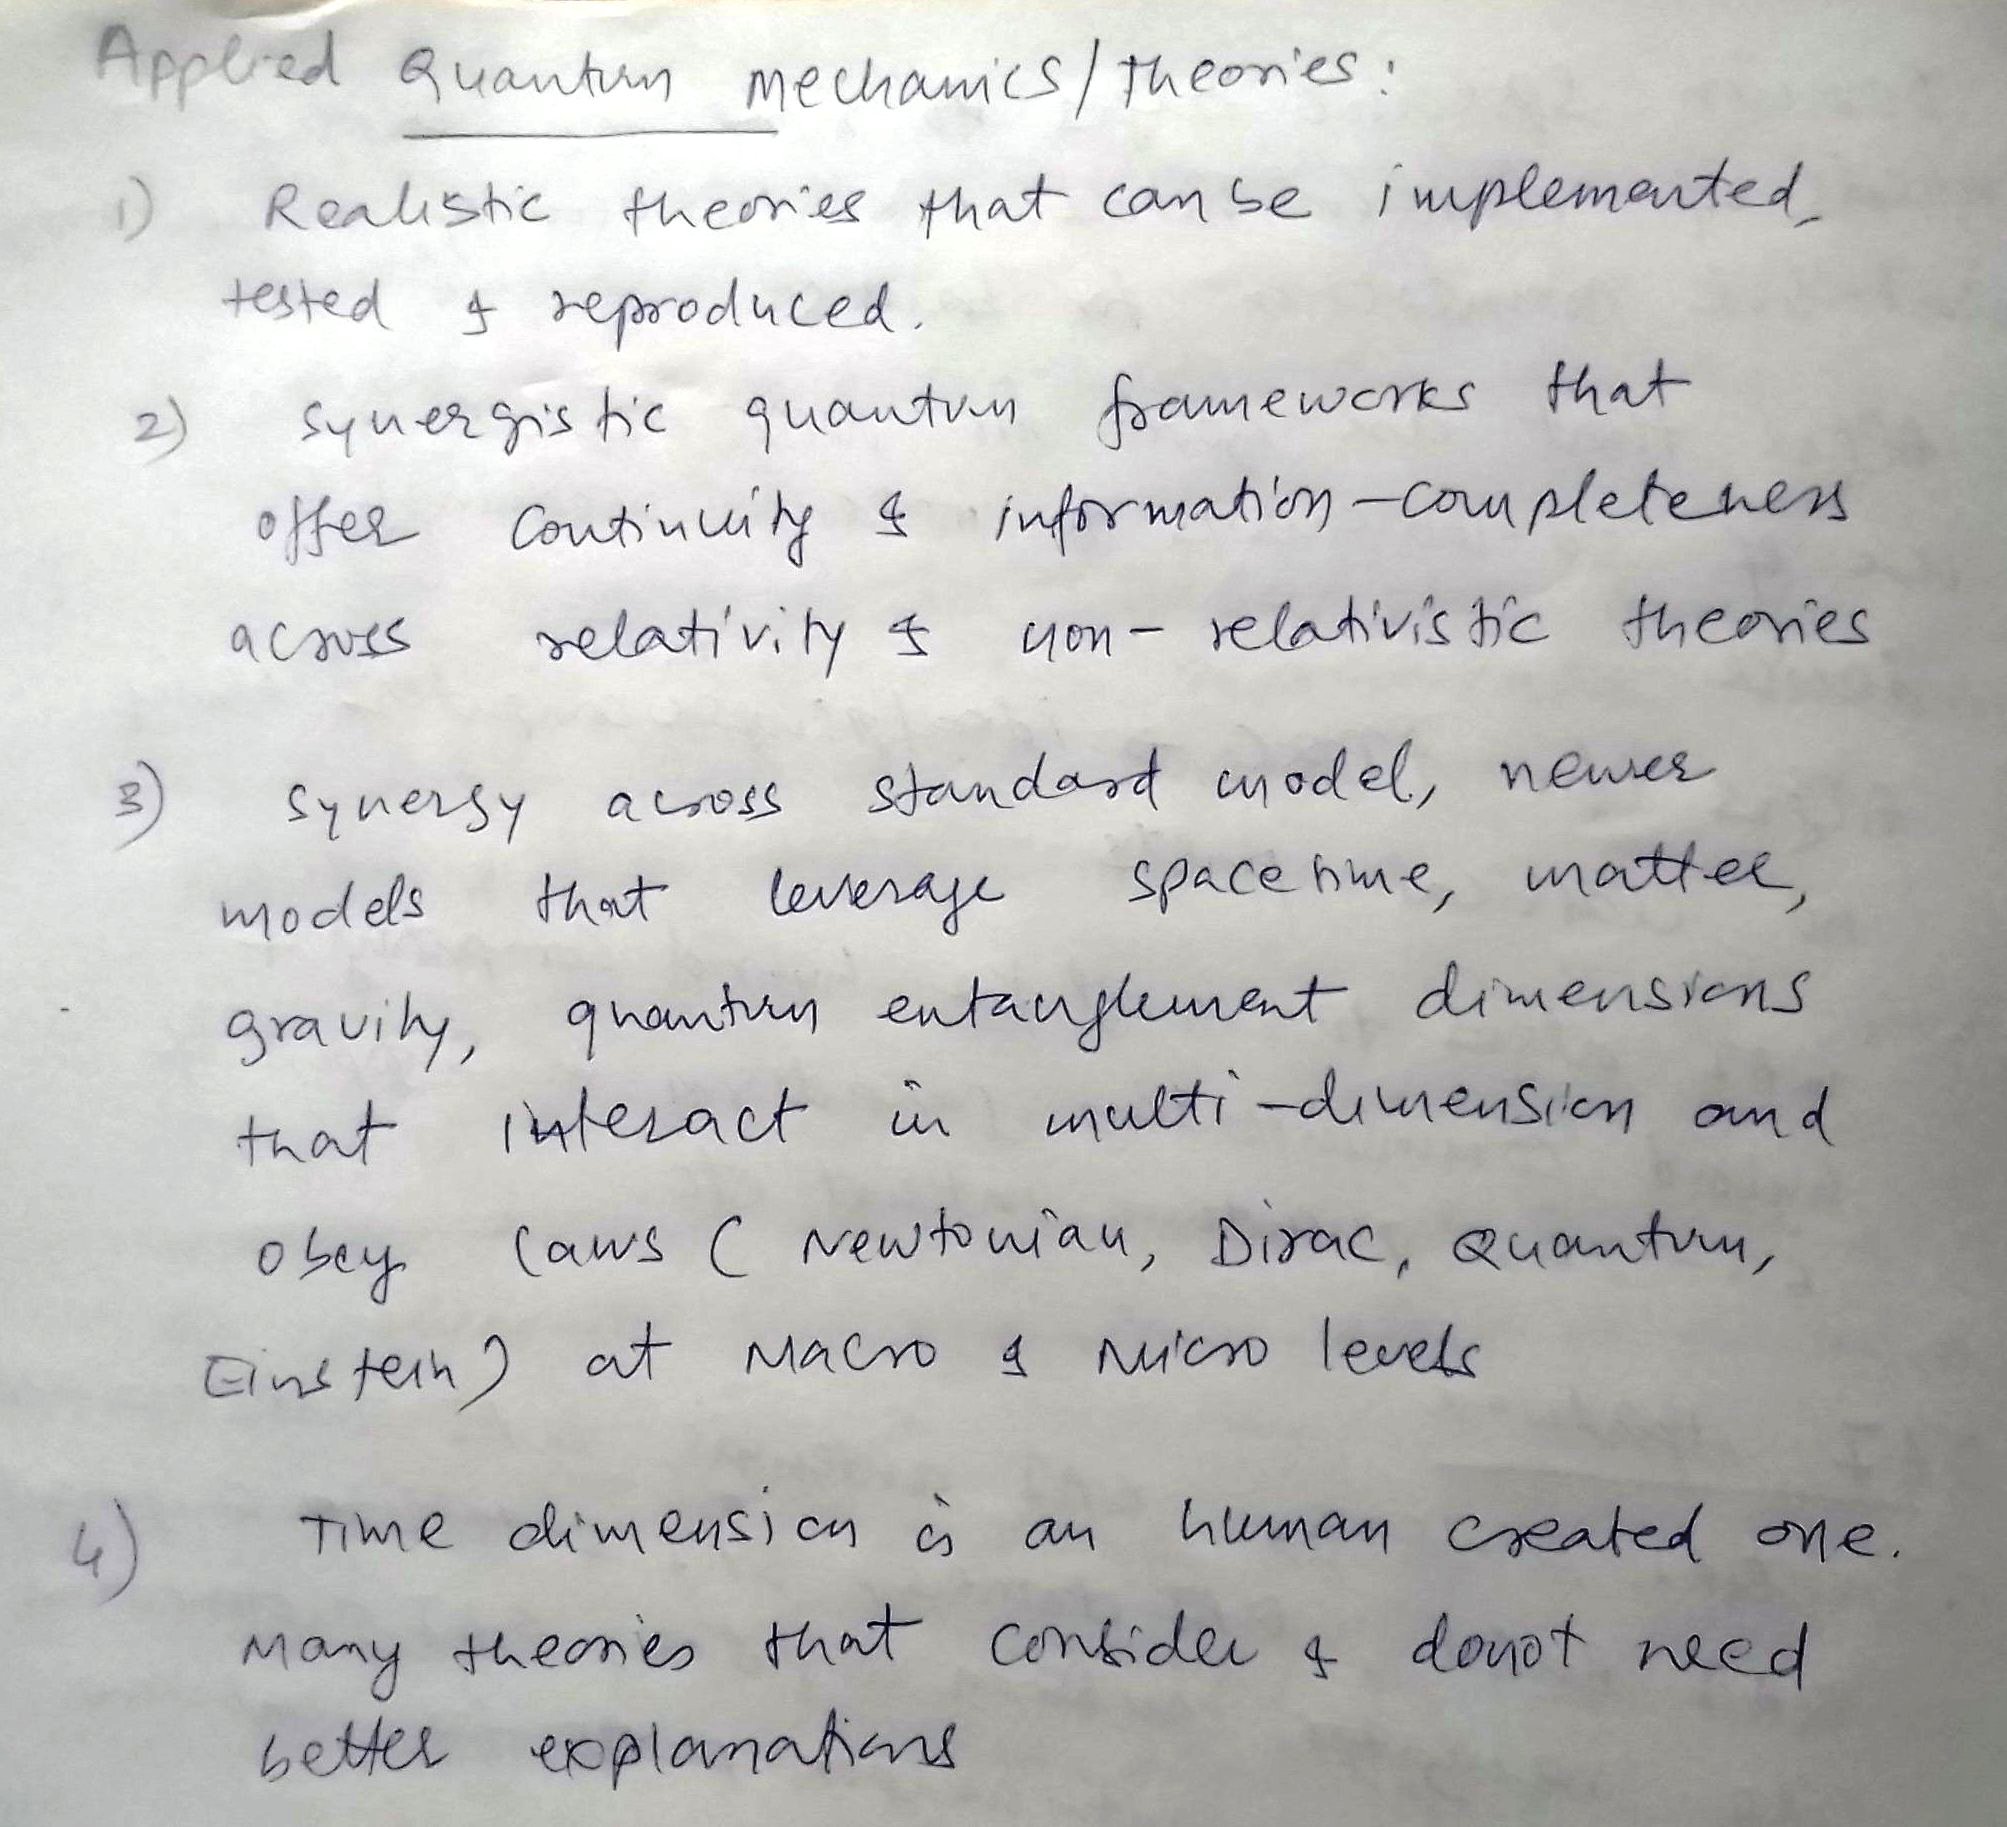 Applied Quantum Mechanics/Theories:
1) Realistic theories that can be implemented,
tested & reproduced.
2) Synergistic quantum frameworks that
offer continuity & information-completeness
across relativity & non-relativistic theories
3) Synergy across standard model, newer
models that leverage spacetime, matter,
gravity, quantum entanglement dimensions
that interact in multi-dimension and
obey laws (Newtonian, Dirac, Quantum,
Einstein) at Macro & Micro levels
4) Time dimension is an human created one.
Many theories that consider & donot need
better explanations